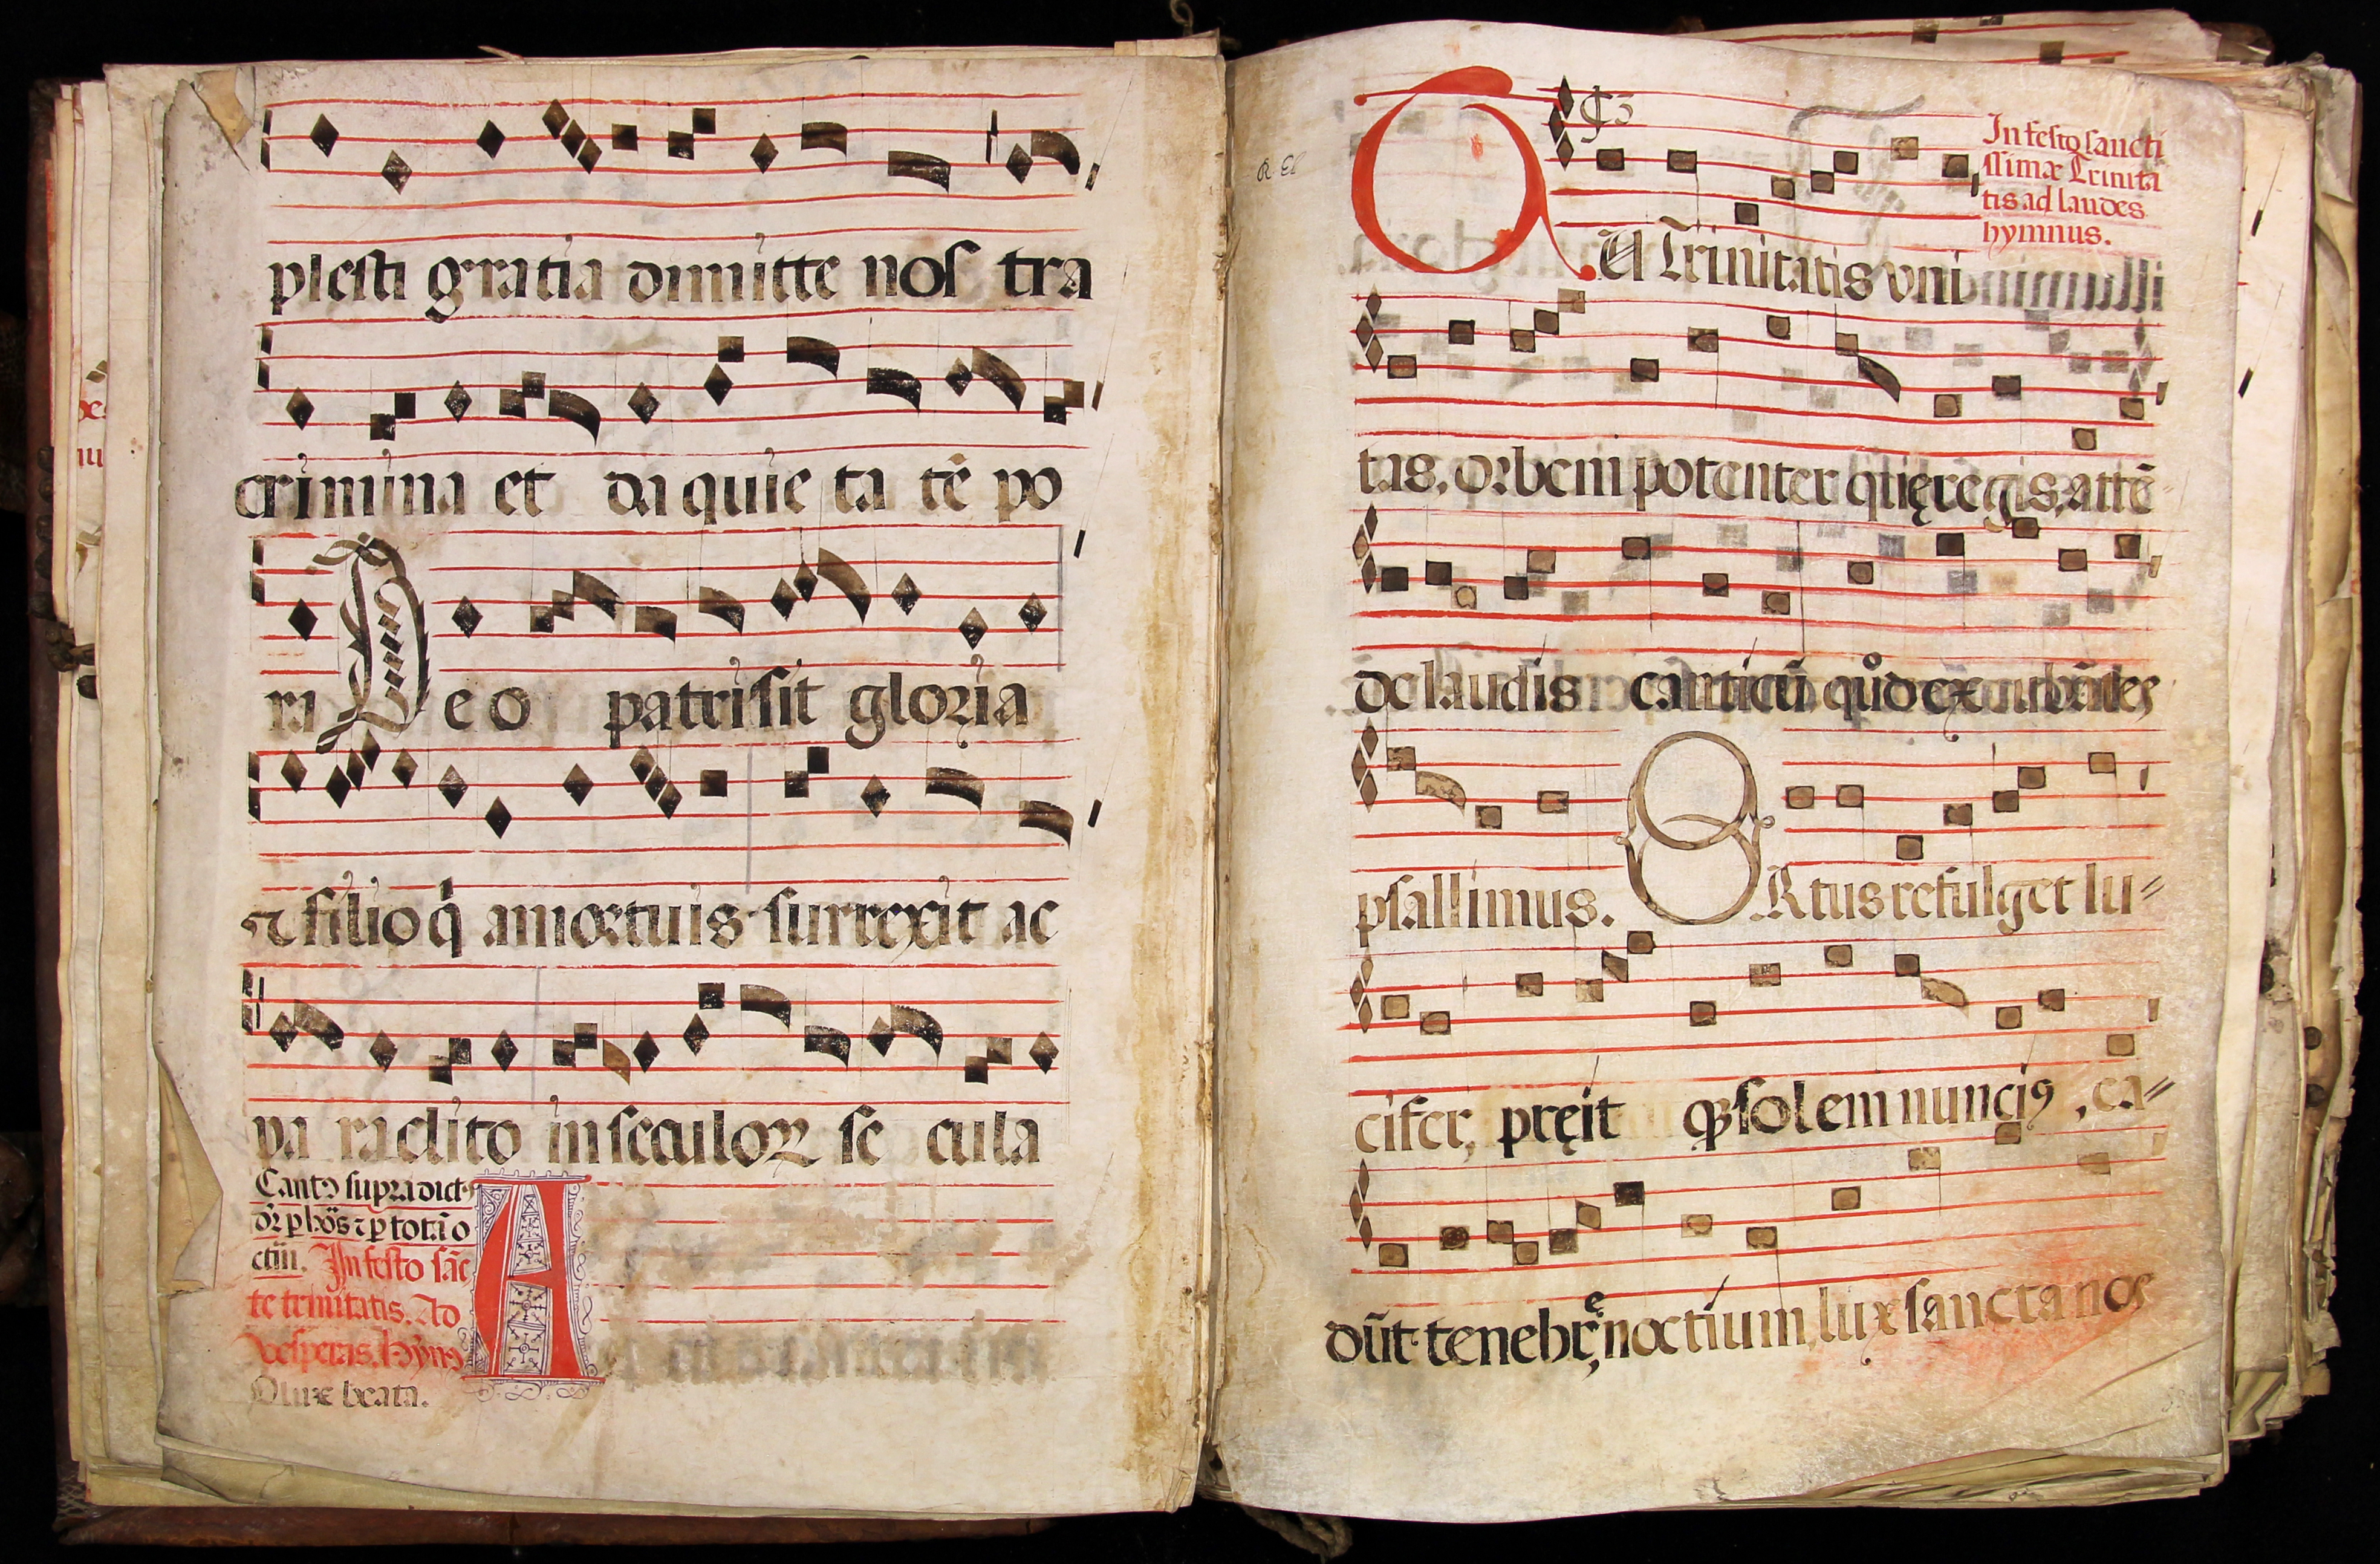 plesti gratia dimitte nos tra
crimina et da quie ta tē po
ra Deo patri sit gloria
et filio q̄ a mortuis surrexit ac
pa raclito in seculoꝝ se cula
Cantꝰ supra dict
ctũ. In festo sāc
te trinitatis. Ad
vesperas. hymꝰ
O lux beata.
A
R. El
₵3
In festo sancti
ssimæ Trinita
tis ad laudes
hymnus.
TU Trinitatis vni
tas, orbem potenter quę regis, attē
de laudis canticū quod excubātes
psallimus.
ORtus refulget lu
cifer, pręit qꝫ solem nunciꝰ, ca
dūt tenebrę noctium, lux sancta nos